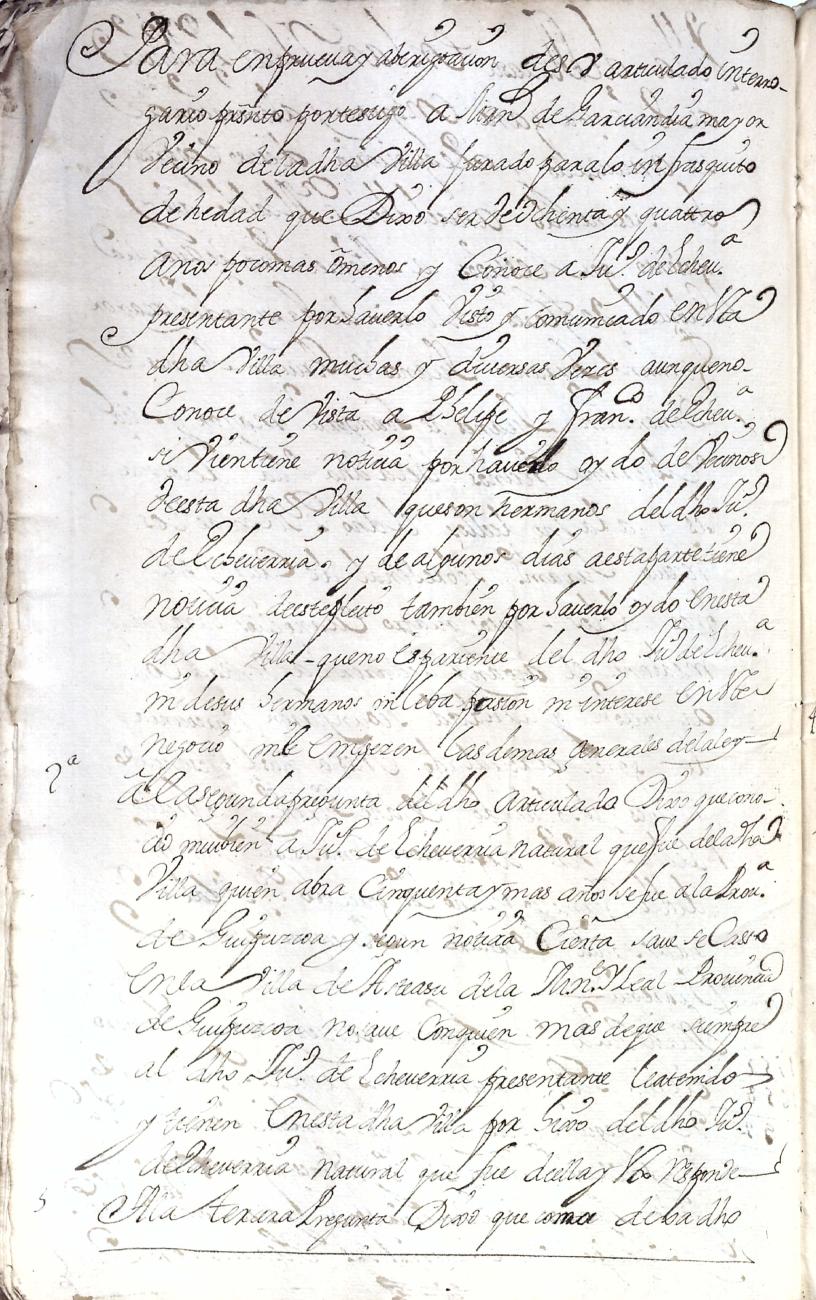 Para enprueva y aberiguacion de su articulado interro-
gario presento por testigo a Min. de Garciandia mayor
Vecino de la dha Villa jurado para lo infrasquito
de hedad que Dixo ser de ochenta y quattro
anos poco mas o menos y Conoce a Ju.º de Echeu.ª
presentante por hauerlo Visto y comunicado en esta
dha Villa muchas y diuersas Vezes aunque no
Conoce de Vista a Phelipe y Fran.co de Echeu.ª
si Vien tiene noticia por hauerlo oydo de Vecinos
de esta dha Villa que son hermanos del dho Ju.º
de Echeverria. y de algunos dias a esta parte tiene
noticia de este pleito tambien por hauerlo oydo en esta
dha Villa - que no es pariente del dho Ju.º de Echeu.ª
ni de sus hermanos ni leba pasion ni interese en este
negocio ni le empezen las demas generales de la ley
2ª
A la segunda pregunta del dho articulado Dixo que cono-
cio mui bien a Ju.º de Echeverria natural que fue de la dha
Villa quien abra Cinquenta y mas años se fue a la Prou.ª
de Guipuzcoa y con noticia Cierta saue se Casso
en la Villa de Asteasu de la Mn. y Leal Prouincia
de Guipuzcoa no saue Con quien mas de que siempre
al dho Ju.º de Echeverria presentante le a tenido
y tienen en esta dha Villa por hixo del dho Ju.º
de Echeverria natural que fue de ella y esto Responde
3
A la tercera Pregunta Dixo que como deba dho